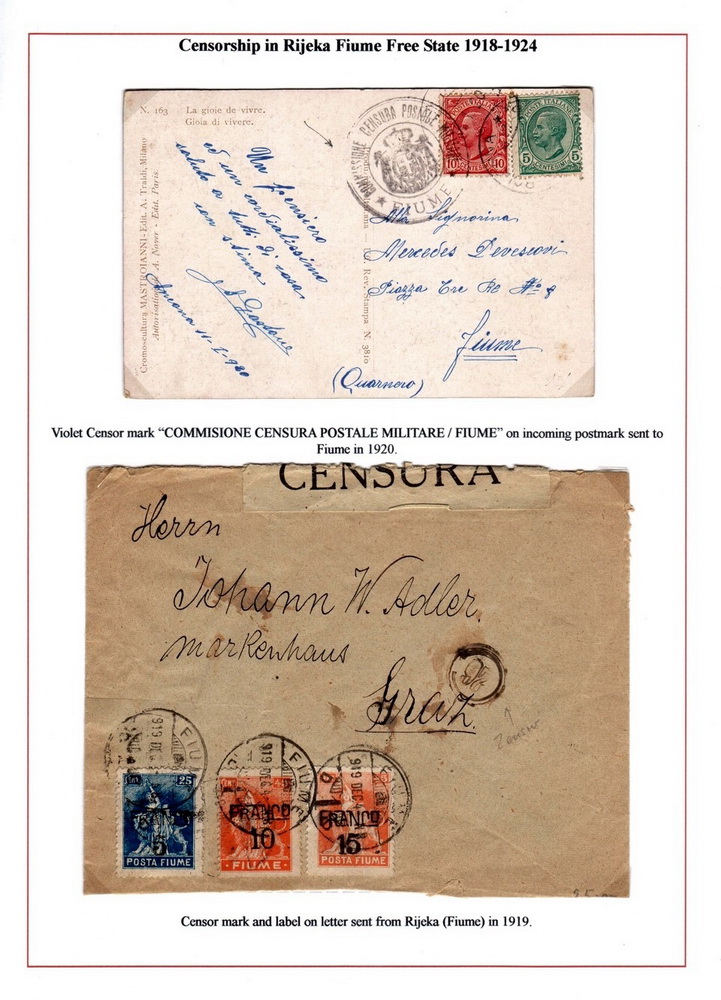 Censorship in Rijeka Fiume Free State 1918-1924
N. 163
La gioie de vivre.
Gioia di vivere.
Cromo-cultura MASTROIANNI - Edit. A. Traldi, Milano
Autorisation de A. Noyer - Edit. Paris.
Un pensiero
ed un cordialissimo
saluto a tutti di casa
con stima
Uff. Rev. Stampa N. 3810
COMMISSIONE CENSURA POSTALE
FIUME
POSTE ITALIANE
10 CENTESIMI 10
POSTE ITALIANE
5 CENTESIMI 5
Alla Signorina
Mercedes Devescovi
Piazza Tre Re No 8
Fiume
(Quarnero)
Violet Censor mark “COMMISIONE CENSURA POSTALE MILITARE / FIUME” on incoming postmark sent to
Fiume in 1920.
CENSURA
Herrn
Johann W. Adler.
Markenhaus
Graz.
FIUME
919 DEC
FIUME
919 DEC
FIUME
919 DEC
25
5
POSTA FIUME
FRANCO
10
FIUME
FRANCO
15
POSTA FIUME
Censor mark and label on letter sent from Rijeka (Fiume) in 1919.